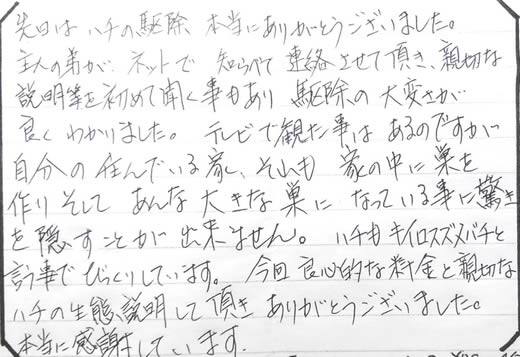 先日は ハチの駆除 本当にありがとうございました。
主人の弟が、ネットで 知らべて 連絡させて頂き、親切な
説明等を初めて聞く事もあり 駆除の 大変さが
良く わかりました。 テレビで観た事は あるのですが
自分の 住んでいる家に、それも 家の中に巣を
作り そして あんな 大きな巣に なっている事に驚き
を隠すことが 出来ません。 ハチも キイロスズメバチと
言う事で びっくりしています。 今回 良心的な料金と親切な
ハチの生態説明して頂き ありがとうございました。
本当に感謝しています.